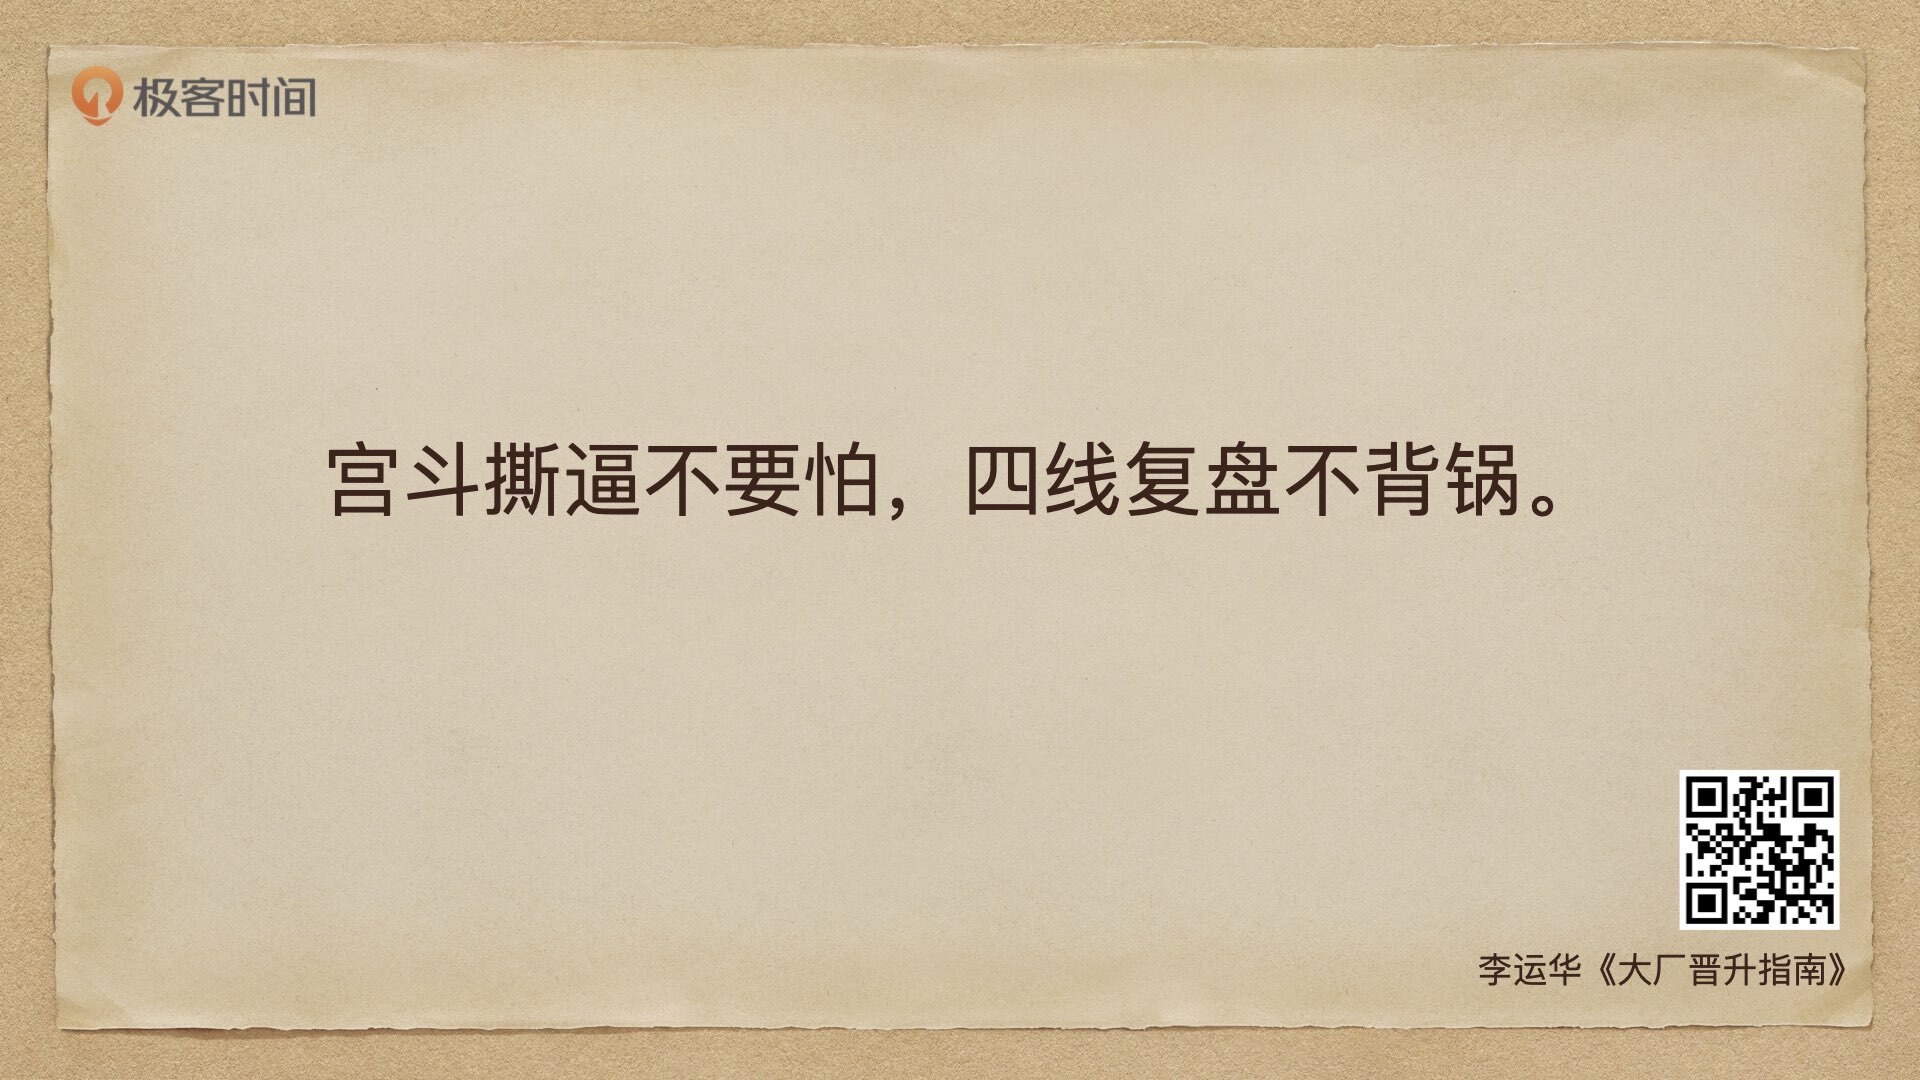 极客时间
宫斗撕逼不要怕，四线复盘不背锅。
李运华《大厂晋升指南》